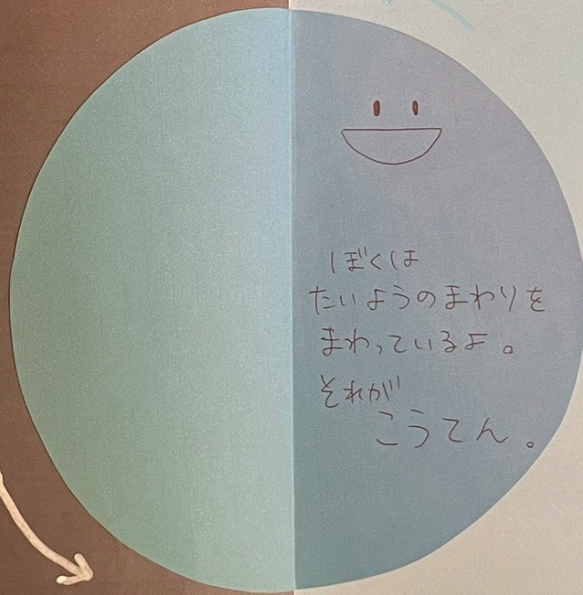 ぼくは
たいようのまわりを
まわっているよ。
それが
こうてん。